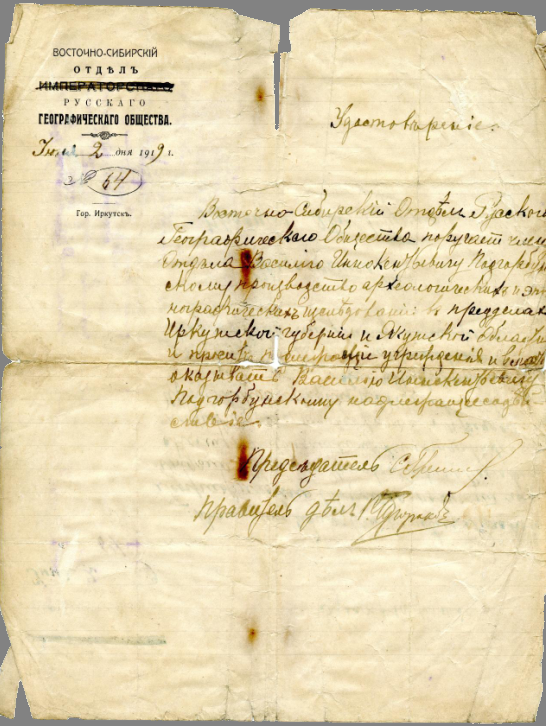 ВОСТОЧНО-СИБИРСКІЙ
ОТДѢЛЪ
ИМПЕРАТОРСКАГО
РУССКАГО
ГЕОГРАФИЧЕСКАГО ОБЩЕСТВА.
Іюня 2 дня 1919 г.
№ 64
Гор. Иркутскъ.
Удостовѣреніе.
Восточно-Сибирскій Отдѣлъ Русскаго
Географическаго Общества поручает член
Отдѣла Василію Иннокентьевичу Подгорбун
скому производство археологических и этн
нографических изслѣдованій в пределах
Иркутской губерніи и Якутской области
и просит учрежденія и
оказывать Василію Иннокентьевичу
Подгорбунскому надлежащее содѣй
ствіе.
Предсѣдатель
Правитель дѣл